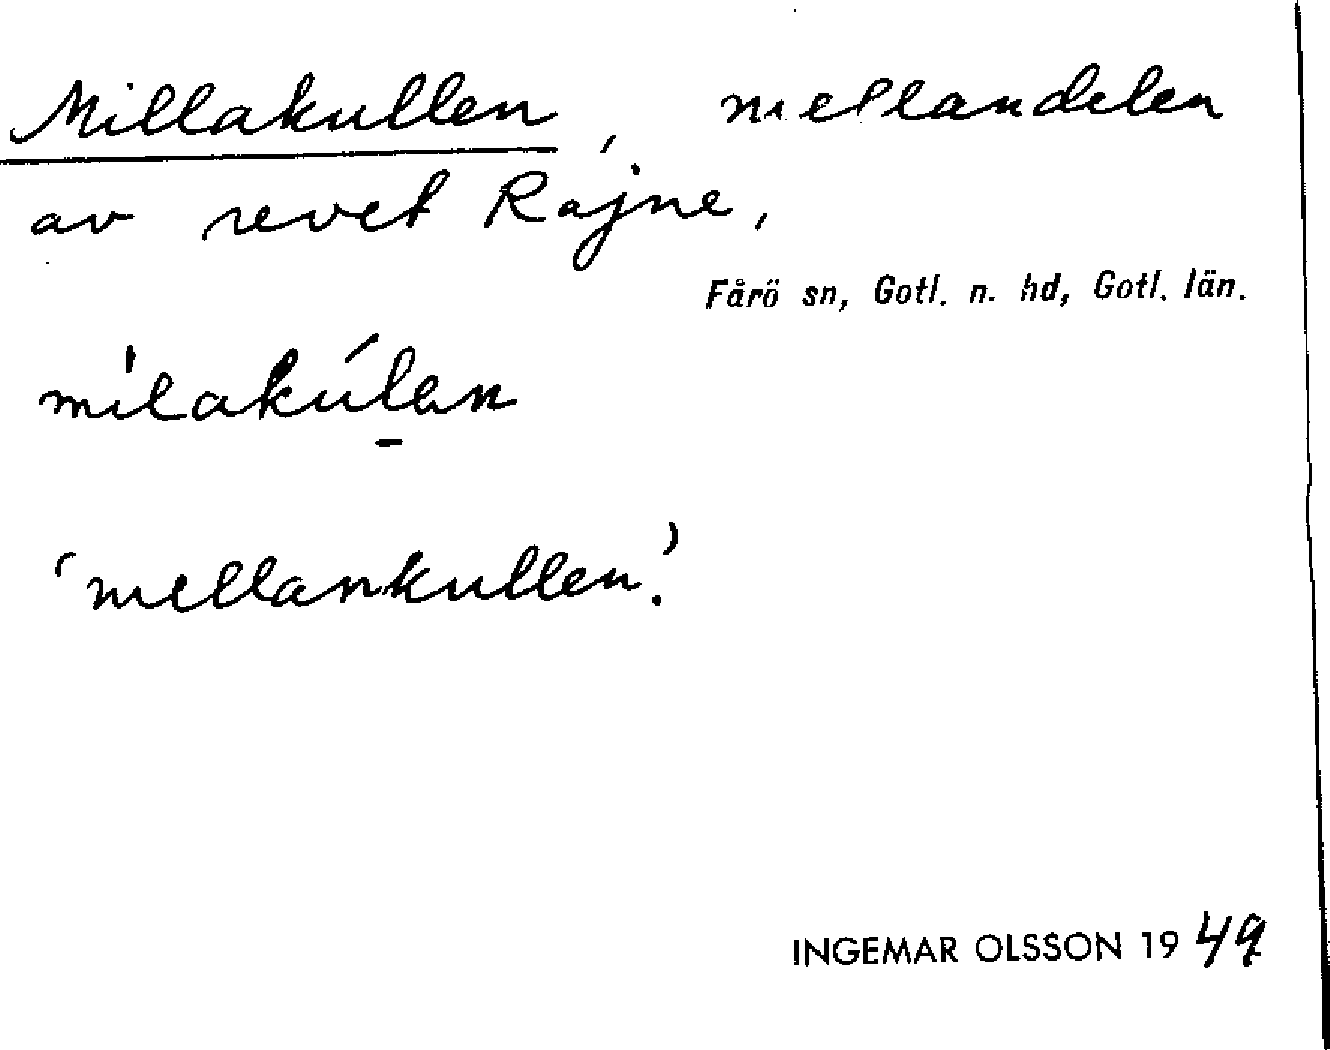 Millakullen, mellandelen
av revet Rajne,
Fårö sn, Gotl. n. hd, Gotl. län.
mìlakúlan
'mellankullen'.
INGEMAR OLSSON 1949